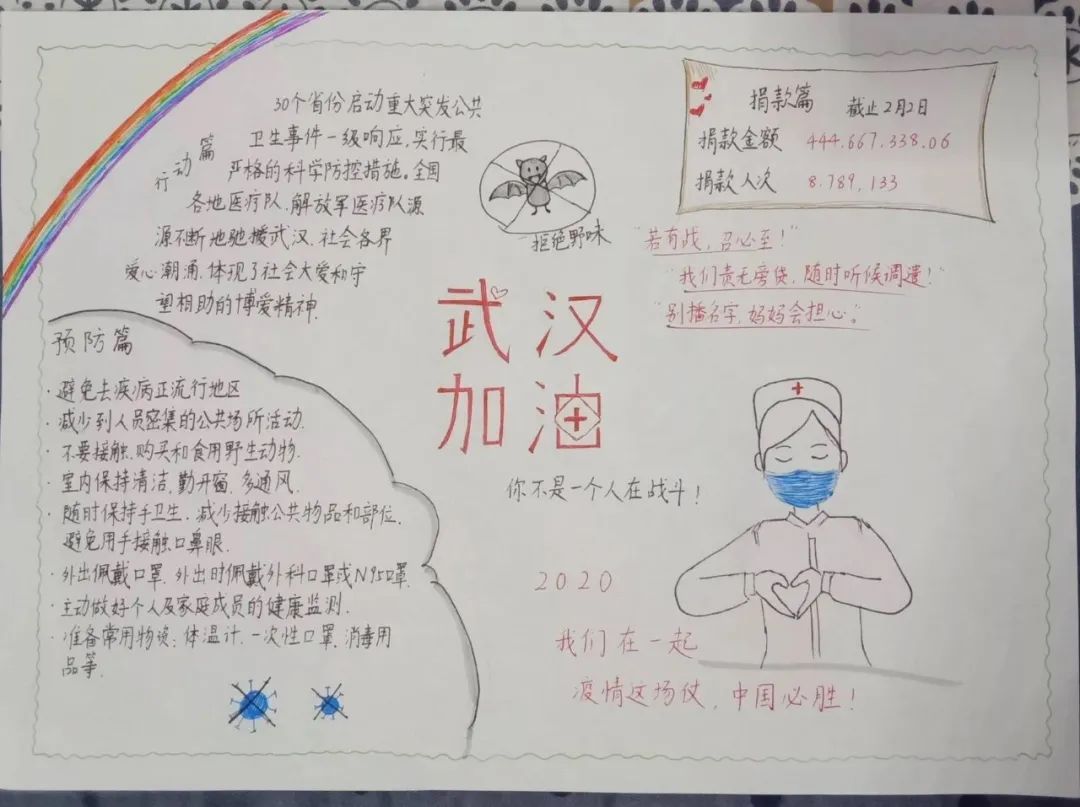 30个省份启动重大突发公共
行动篇
卫生事件一级响应,实行最
严格的科学防控措施。全国
各地医疗队、解放军医疗队源
源不断地驰援武汉、社会各界
爱心潮涌,体现了社会大爱和守
望相助的博爱精神.
拒绝野味
捐款篇 截止2月2日
捐款金额 444.667.338.06
捐款人次 8.789,133
"若有战,召必至!"
"我们责无旁贷,随时听候调遣!"
"别播名字,妈妈会担心。"
武汉
加油
预防篇
·避免去疾病正流行地区
·减少到人员密集的公共场所活动.
·不要接触.购买和食用野生动物.
·室内保持清洁,勤开窗,多通风.
·随时保持手卫生.减少接触公共物品和部位.
避免用手接触口鼻眼.
·外出佩戴口罩.外出时佩戴外科口罩或N95口罩.
·主动做好个人及家庭成员的健康监测.
·准备常用物资:体温计.一次性口罩.消毒用
品等.
你不是一个人在战斗!
2020
我们在一起
疫情这场仗,中国必胜!